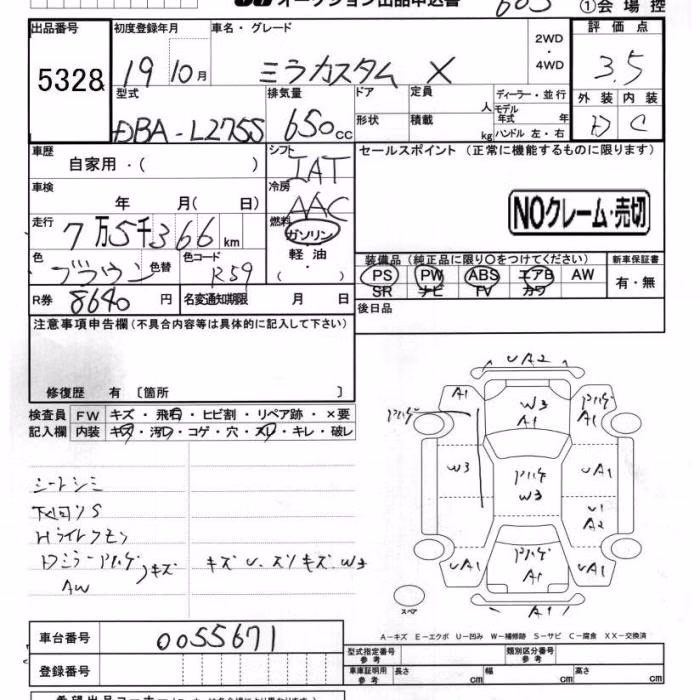 オークション出品申込書 603 ①会場控
出品番号 初度登録年月 車名・グレード 評価点
5328 19 10月 ミラカスタム X 2WD・4WD 3.5
型式 排気量 ドア 定員 人 ディーラー・並行 外装 内装
DBA-L275S 650cc 形状 積載 kg モデル年式 年 ハンドル 左・右 D C
車歴 自家用・( ) シフト IAT セールスポイント (正常に機能するものに限ります)
車検 年 月( 日) 冷房 AAC
NOクレーム・売切
走行 7万5千366km 燃料 ガソリン
軽油
・( )
色 ブラウン 色替 色コード R59
装備品(純正品に限り○をつけてください) 新車保証書
PS PW ABS エアB AW 有・無
SR ナビ TV カワ
R券 8640円 名変通知期限 月 日 後日品
注意事項申告欄(不具合内容等は具体的に記入して下さい)
修復歴 有 〔箇所 〕
検査員 FW キズ・飛石・ヒビ割・リペア跡・×要
記入欄 内装 キズ・汚レ・コゲ・穴・スレ・キレ・破レ
シートシミ
下回りS
Hライトクモリ
Dミラーアハゲ
AW キズ キズU.スリキズ.W3
UA2
A1 W3 A1
A1
W3 W3 UA1
U1
A2
UA1 A1 UA1
A1
スペア
A-キズ E-エクボ U-凹み W-補修跡 S-サビ C-腐食 XX-交換済
車台番号 0055671 型式指定番号 参考 類別区分番号 参考
登録番号 車庫証明用 参考 長さ cm 幅 cm 高さ cm